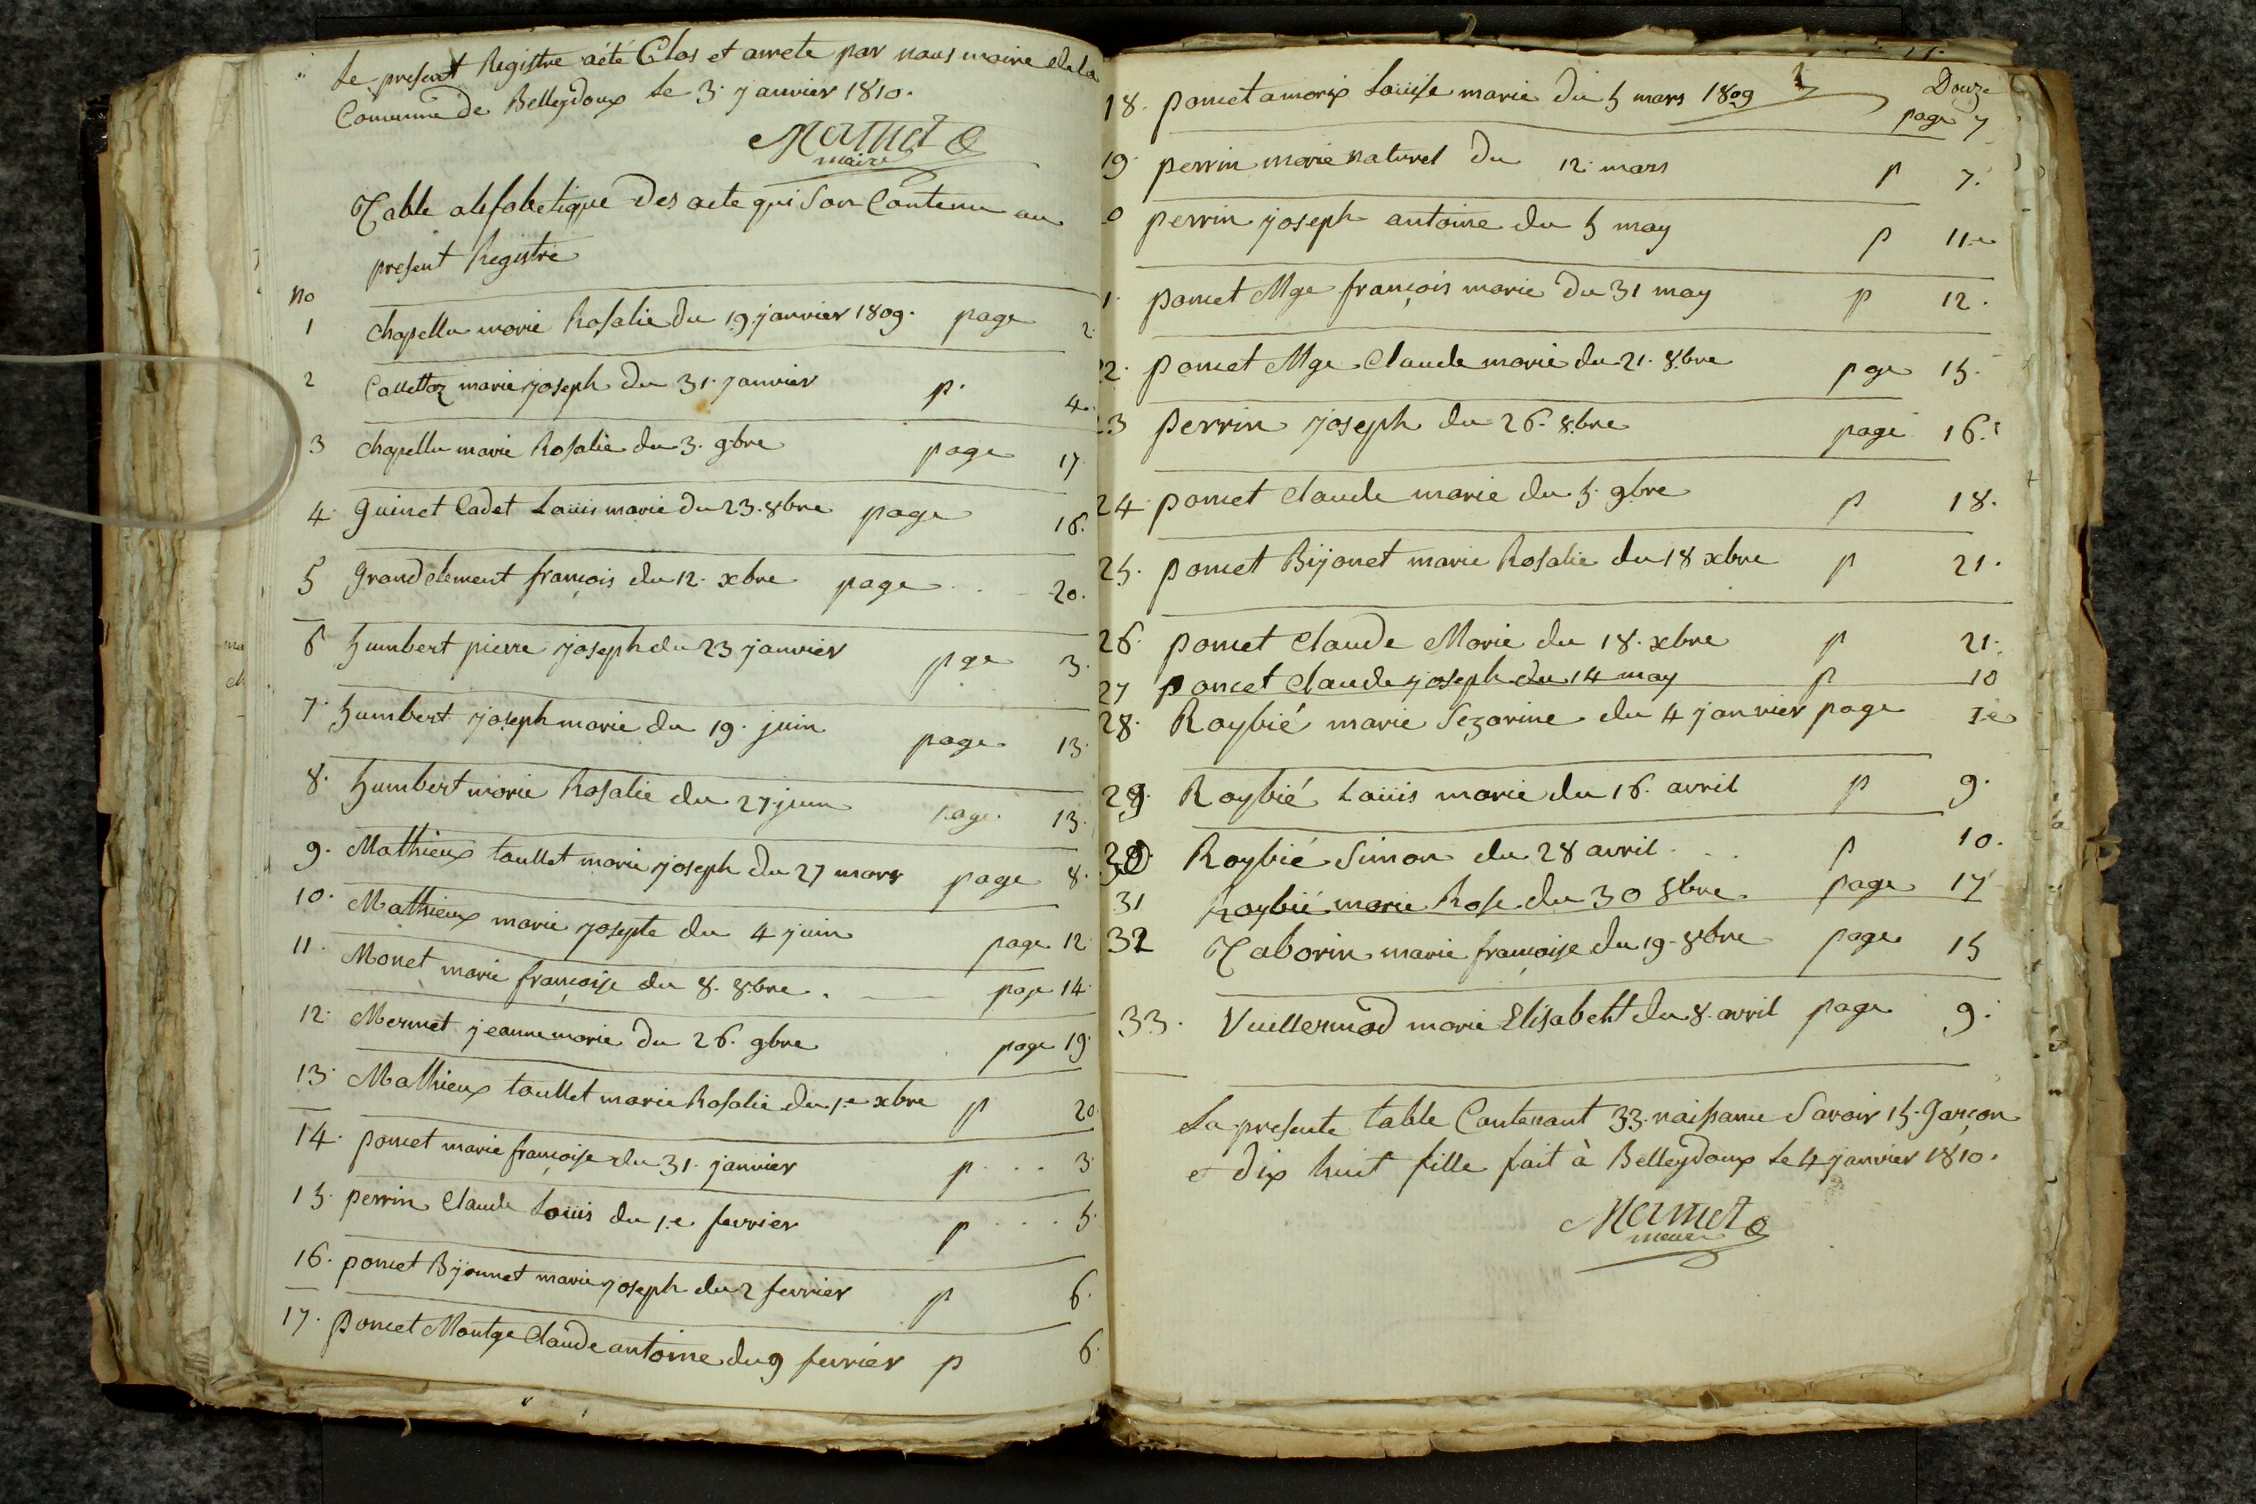 Le present Registre aété Clos et arrete par nous maire de la
Commune de Belleydoux le 3. janvier 1810.
Mermet
maire
Table alfabetique des acte qui son Contenu au
present Registre
no
1 chapellu marie Rosalie du 19. janvier 1809. page 2.
2 Collettaz marie joseph du 31. janvier p. 4.
3 chapellu marie Rosalie du 3. 9bre page 17
4. guinet Cadet Louis marie du 23. 8bre page 16.
5 grandclement françois du 12. xbre page 20.
6 humbert pierre joseph du 23 janvier pge 3.
7. humbert joseph marie du 19. juin page 13.
8. humbert marie Rosalie du 27 juin page 13.
9. Mathieux taullet marie joseph du 27 mars page 8.
10. Mathieux marie josepte du 4 juin page 12
11. Monet marie françoise du 8. 8bre. page 14.
12. Mermet jeanne marie du 26. 9bre page 19.
13. Mathieux taullet marie Rosalie du 1.e xbre p 20.
14. poncet marie françoise du 31. janvier p... 3.
15. perrin Claude Louis du 1.e fevrier p... 5.
16. poncet Bijonnet marie joseph du 2 fevrier p 6.
17. poncet Montge Claude antoine du 9 fevrier p 6.
Douze
18. poncet amorix Louise marie du 5 mars 1809 page 7
19. perrin marie naturel du 12. mars p 7.
0 perrin joseph antoine du 5 may p 11.e
1. poncet Mge françois marie du 31 may p 12.
22. poncet Mge Claude marie du 21. 8bre pge 15.
23 perrin joseph du 26. 8bre page 16.
24. poncet Claude marie du 5. 9bre p 18.
25. poncet Bijonet marie Rosalie du 18 xbre p 21.
26. poncet Claude Marie du 18. xbre p 21.
27 poncet Claude joseph du 14 may p 10
28. Roybié marie Sezarine du 4 janvier page 1.e
29. Roybié Louis marie du 16. avril p 9.
30. Roybié Simon du 28 avril. p 10.
31 Roybié marie Rose du 30 8bre page 17
32 Taborin marie françoise du 19. 8bre page 15
33. Vuillermod marie Elisabeht du 8. avril page 9.
La presente table Contenant 33. naissance Savoir 15. garçon
et dix huit fille fait à Belleydoux le 4 janvier 1810.
Mermet
maire